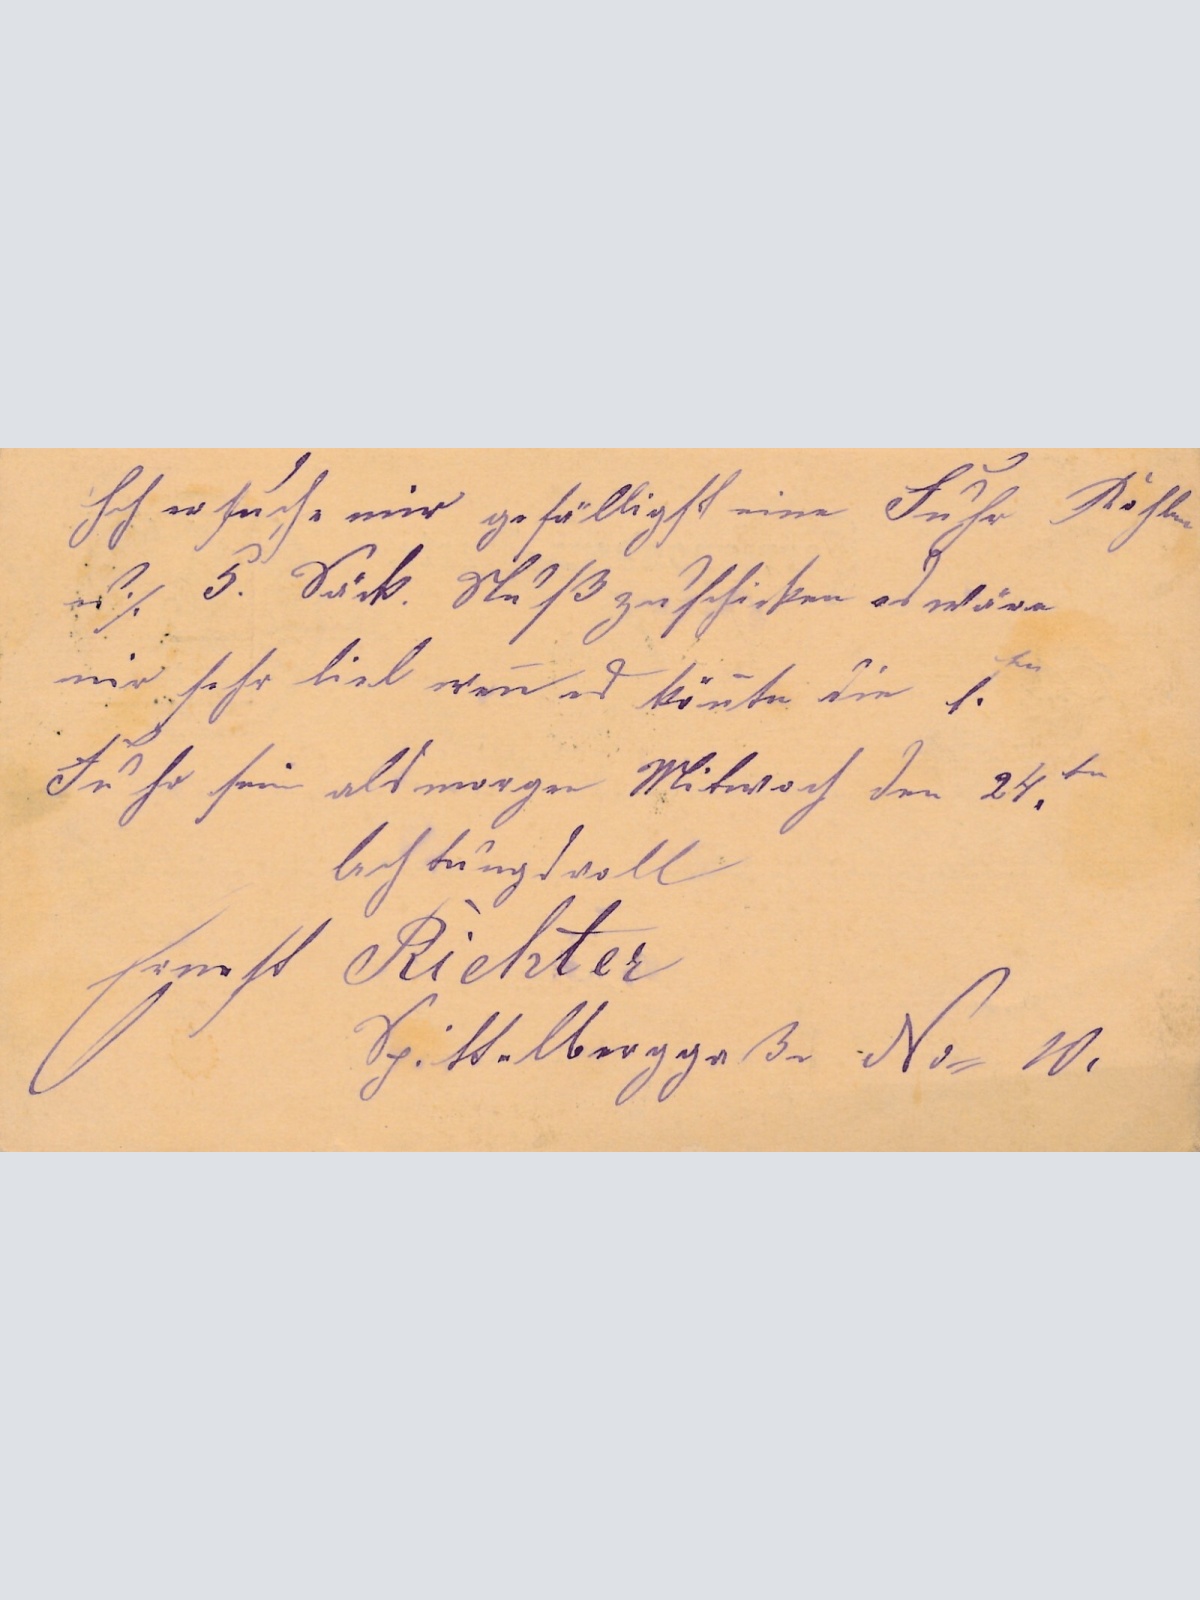 Ich ersuche mir gefälligst eine Fuhr Kohlen
5. Säck. Nuß zuschicken es wäre
mir sehr lieb wen̄ es kön̄te die 1.te
Fuhr sein als morgen Mitwoch den 24.ten
Achtungsvoll
Ernest Richter
Spittelberggaße No 10.